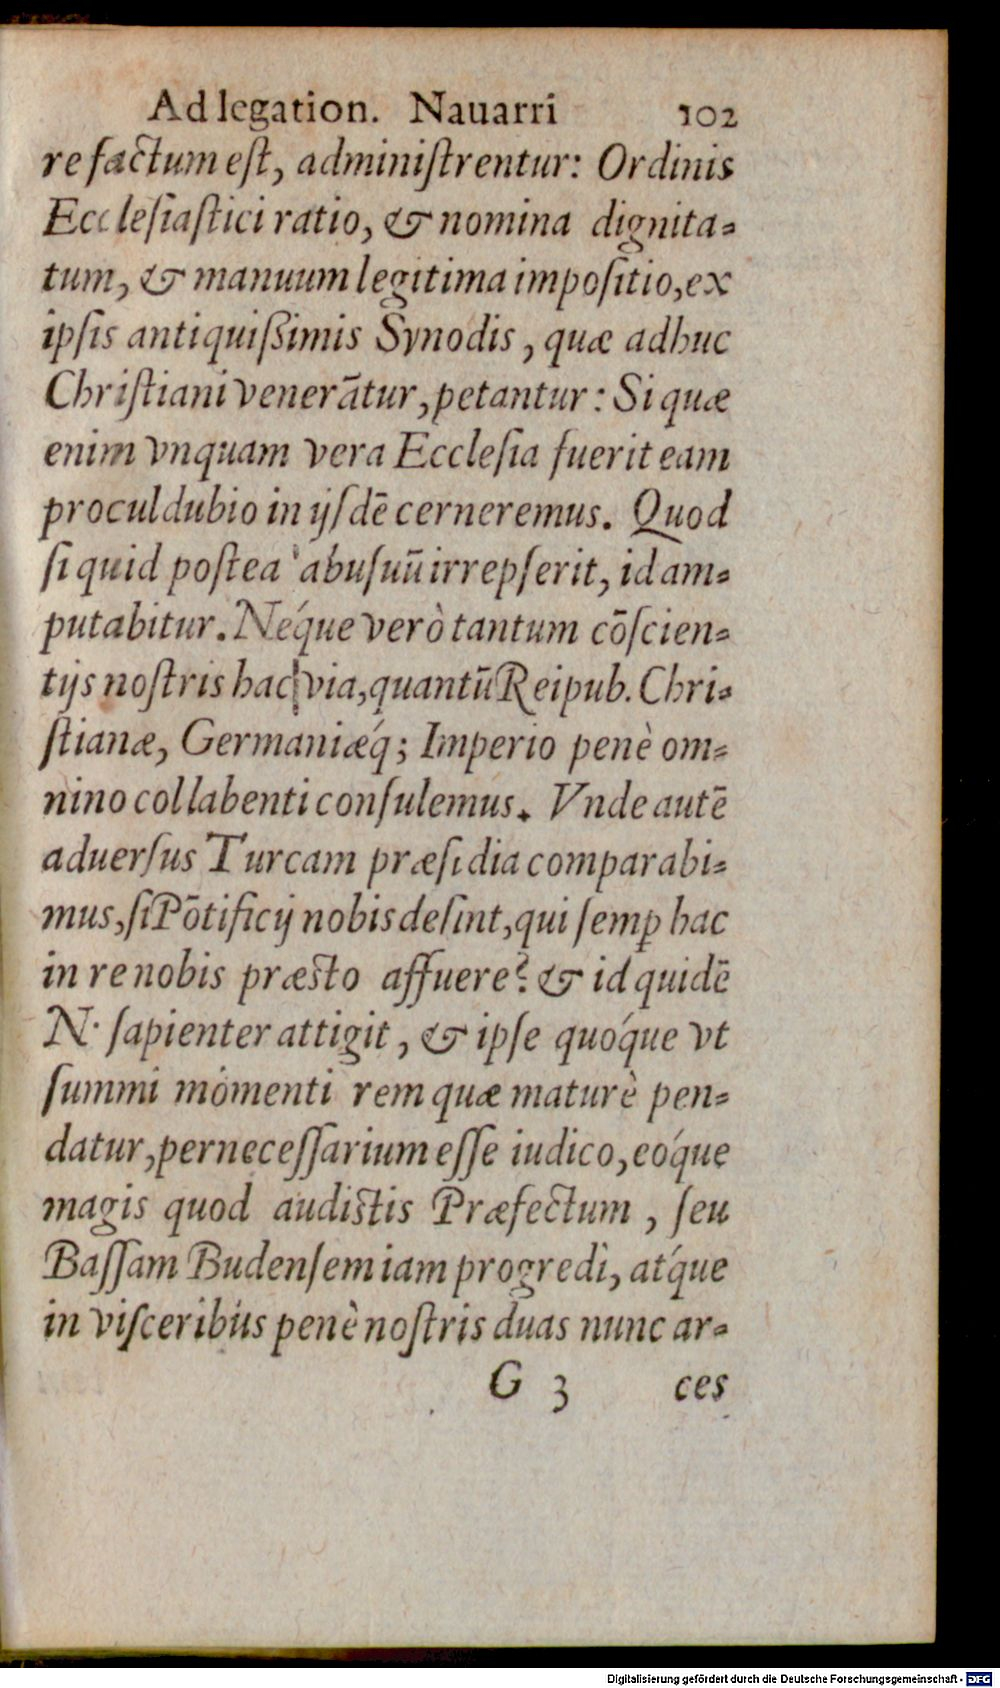 Ad legation. Nauarri 102
re factum eſt, adminiſtrentur: Ordinis
Eccleſiaſtici ratio, & nomina dignita-
tum, & manuum legitima impoſitio, ex
ipſis antiquißimis Synodis, quæ adhuc
Chriſtiani venerātur, petantur: Si quæ
enim vnquam vera Eccleſia fuerit eam
proculdubio in ijſdē cerneremus. Quod
ſi quid poſtea abuſuū irrepſerit, id am-
putabitur. Neq́ue verò tantum cōſcien-
tijs noſtris hac via, quantū Reipub. Chri-
ſtianæ, Germaniæq́; Imperio penè om-
nino collabenti conſulemus. Vnde autē
aduerſus Turcam præſidia comparabi-
mus, ſi Pōtificij nobis deſint, qui ſemꝑ hac
in re nobis præſto affuere? & id quidē
N. ſapienter attigit, & ipſe quoq́ue vt
ſummi momenti rem quæ maturè pen-
datur, perneceſſarium eſſe iudico, eoq́ue
magis quod audiſtis Præfectum, ſeu
Baſſam Budenſem iam progredi, atq́ue
in viſceribus penè noſtris duas nunc ar-
G 3 ces
Digitalisierung gefördert durch die Deutsche Forschungsgemeinschaft - DFG